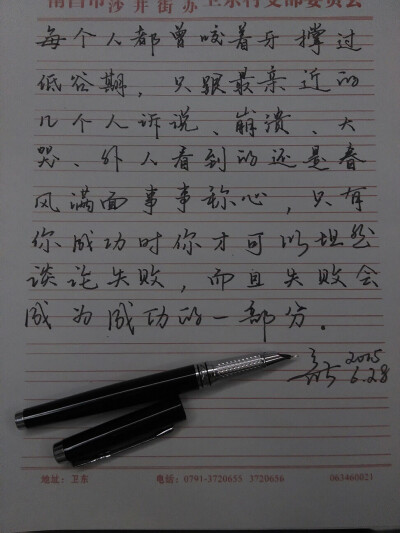 南昌市沙井街办卫东村支部委员会
每个人都曾咬着牙撑过
低谷期，只跟最亲近的
几个人诉说、崩溃、大
哭、外人看到的还是春
风满面事事称心，只有
你成功时你才可以坦然
谈论失败，而且失败会
成为成功的一部分．
2015
6.28
地址：卫东 电话：0791-3720655 3720656 063460021